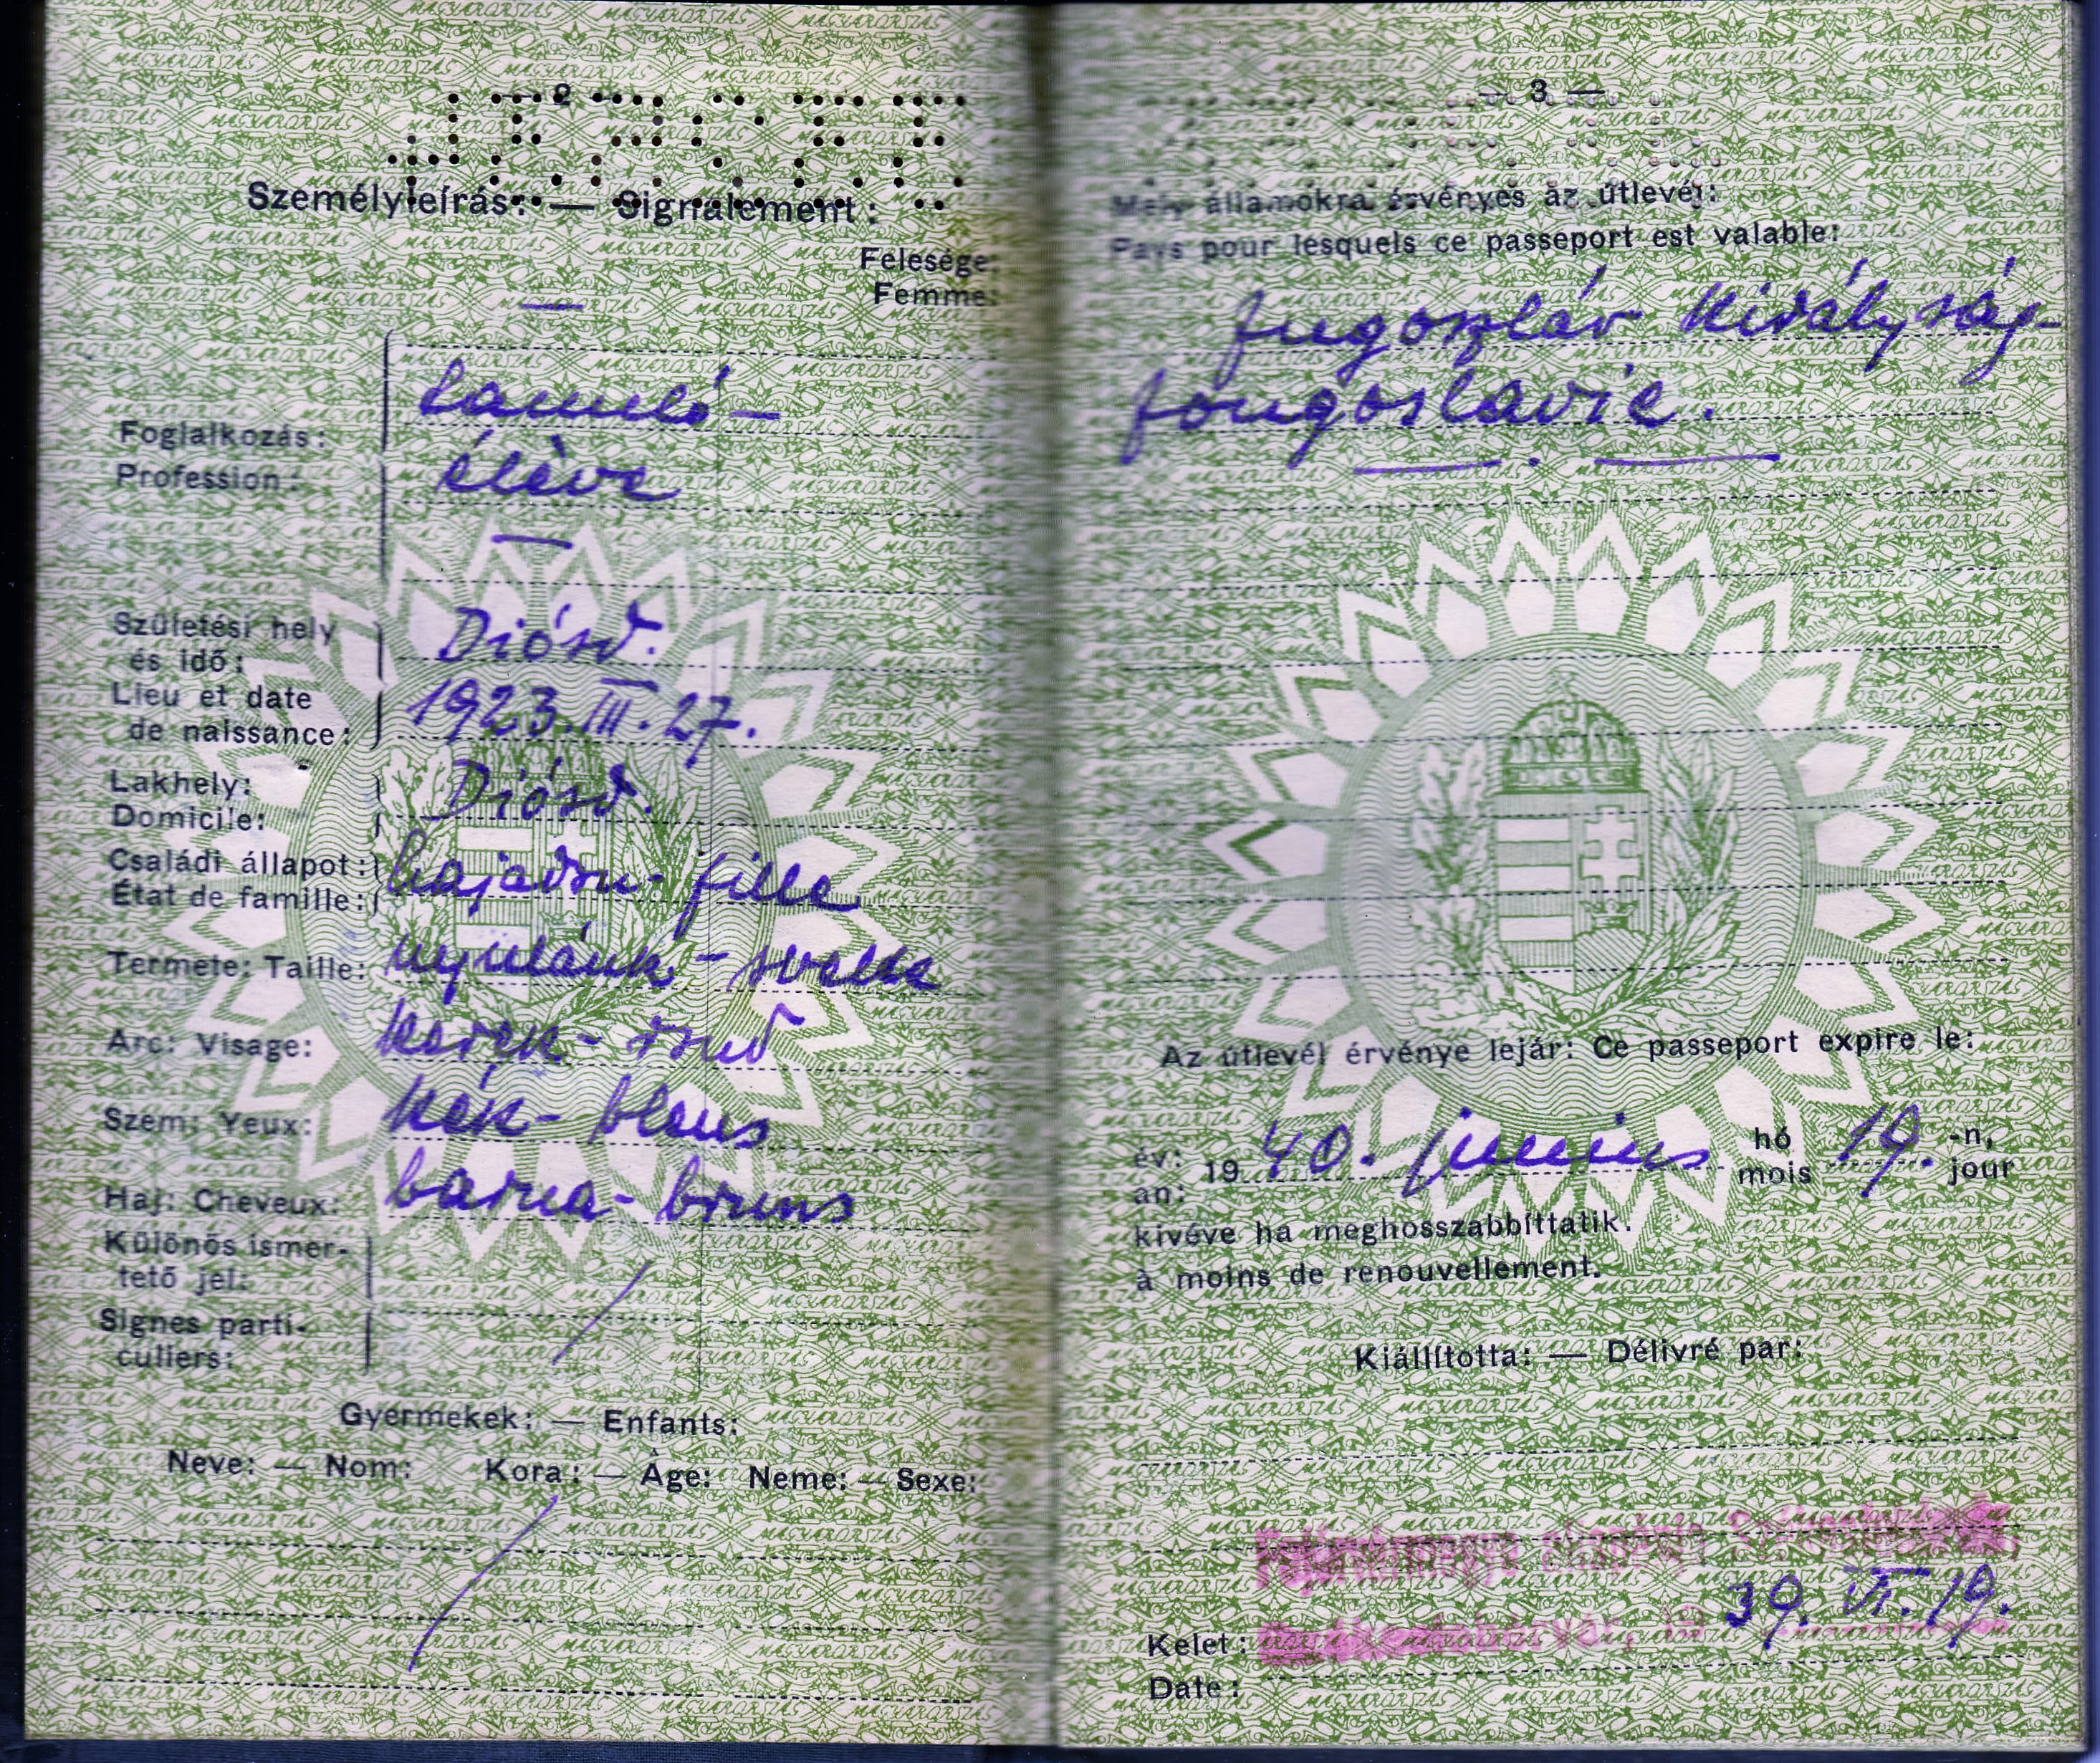 — 2 —
Személyleírás: — Signalement:
Felesége:
Femme:
—
Foglalkozás:
Profession:
tanuló —
élève
—
Születési hely
és idő:
Lieu et date
de naissance:
Diósd.
1923. III. 27.
Lakhely:
Domicile:
Diósd.
Családi állapot:
État de famille:
hajadon - fille
Termete: Taille: nyulánk - svelte
Arc: Visage: kerek - rond
Szem: Yeux: kék - bleus
Haj: Cheveux: barna - bruns
Különös ismer-
tető jel:
Signes parti-
culiers:
Gyermekek: — Enfants:
Neve: — Nom: Kora: — Âge: Neme: — Sexe:
— 3 —
Mely államokra érvényes az útlevél:
Pays pour lesquels ce passeport est valable:
Jugoszláv Királyság-
Jougoslavie.
Az útlevél érvénye lejár: Ce passeport expire le:
év: 1940. junius hó 19. -n,
an: mois jour
kivéve ha meghosszabbíttatik.
à moins de renouvellement.
Kiállította: — Délivré par:
Fejérvármegye alispánja
Kelet: 19 39. VI. 19.
Date: